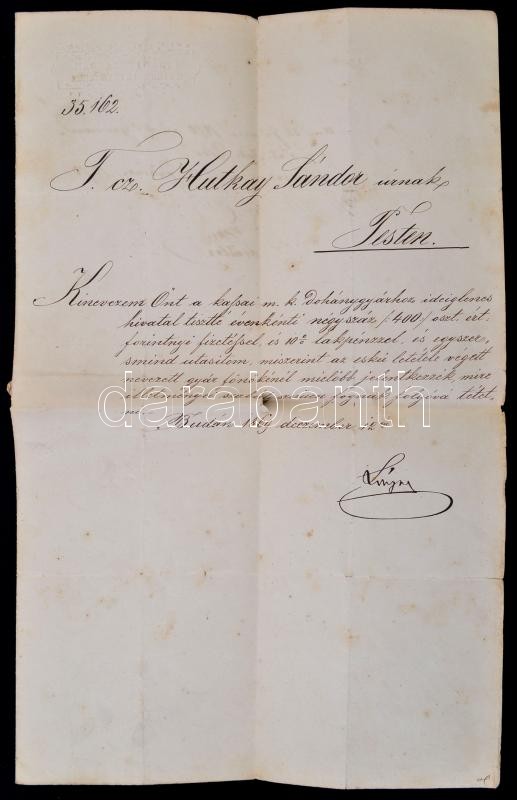 35.162.
T. cz. Hutkay Sándor úrnak
Pesten.
Kinevezem Önt a kassai m. k. dohánygyárhoz ideiglenes
hivatal tisztté évenkénti négyszáz /:400/ oszt. ért.
forintnyi fizetéssel, és 10% lakpénzzel, és egyszer-
smind utasítom, miszerint az eskü letétele végett
nevezett gyár főnökénél mielőbb jelentkezzék, mire
illetményei fognak folyóvá tétet-
ni.
Budán 1869 december
Lónyay
darabanth